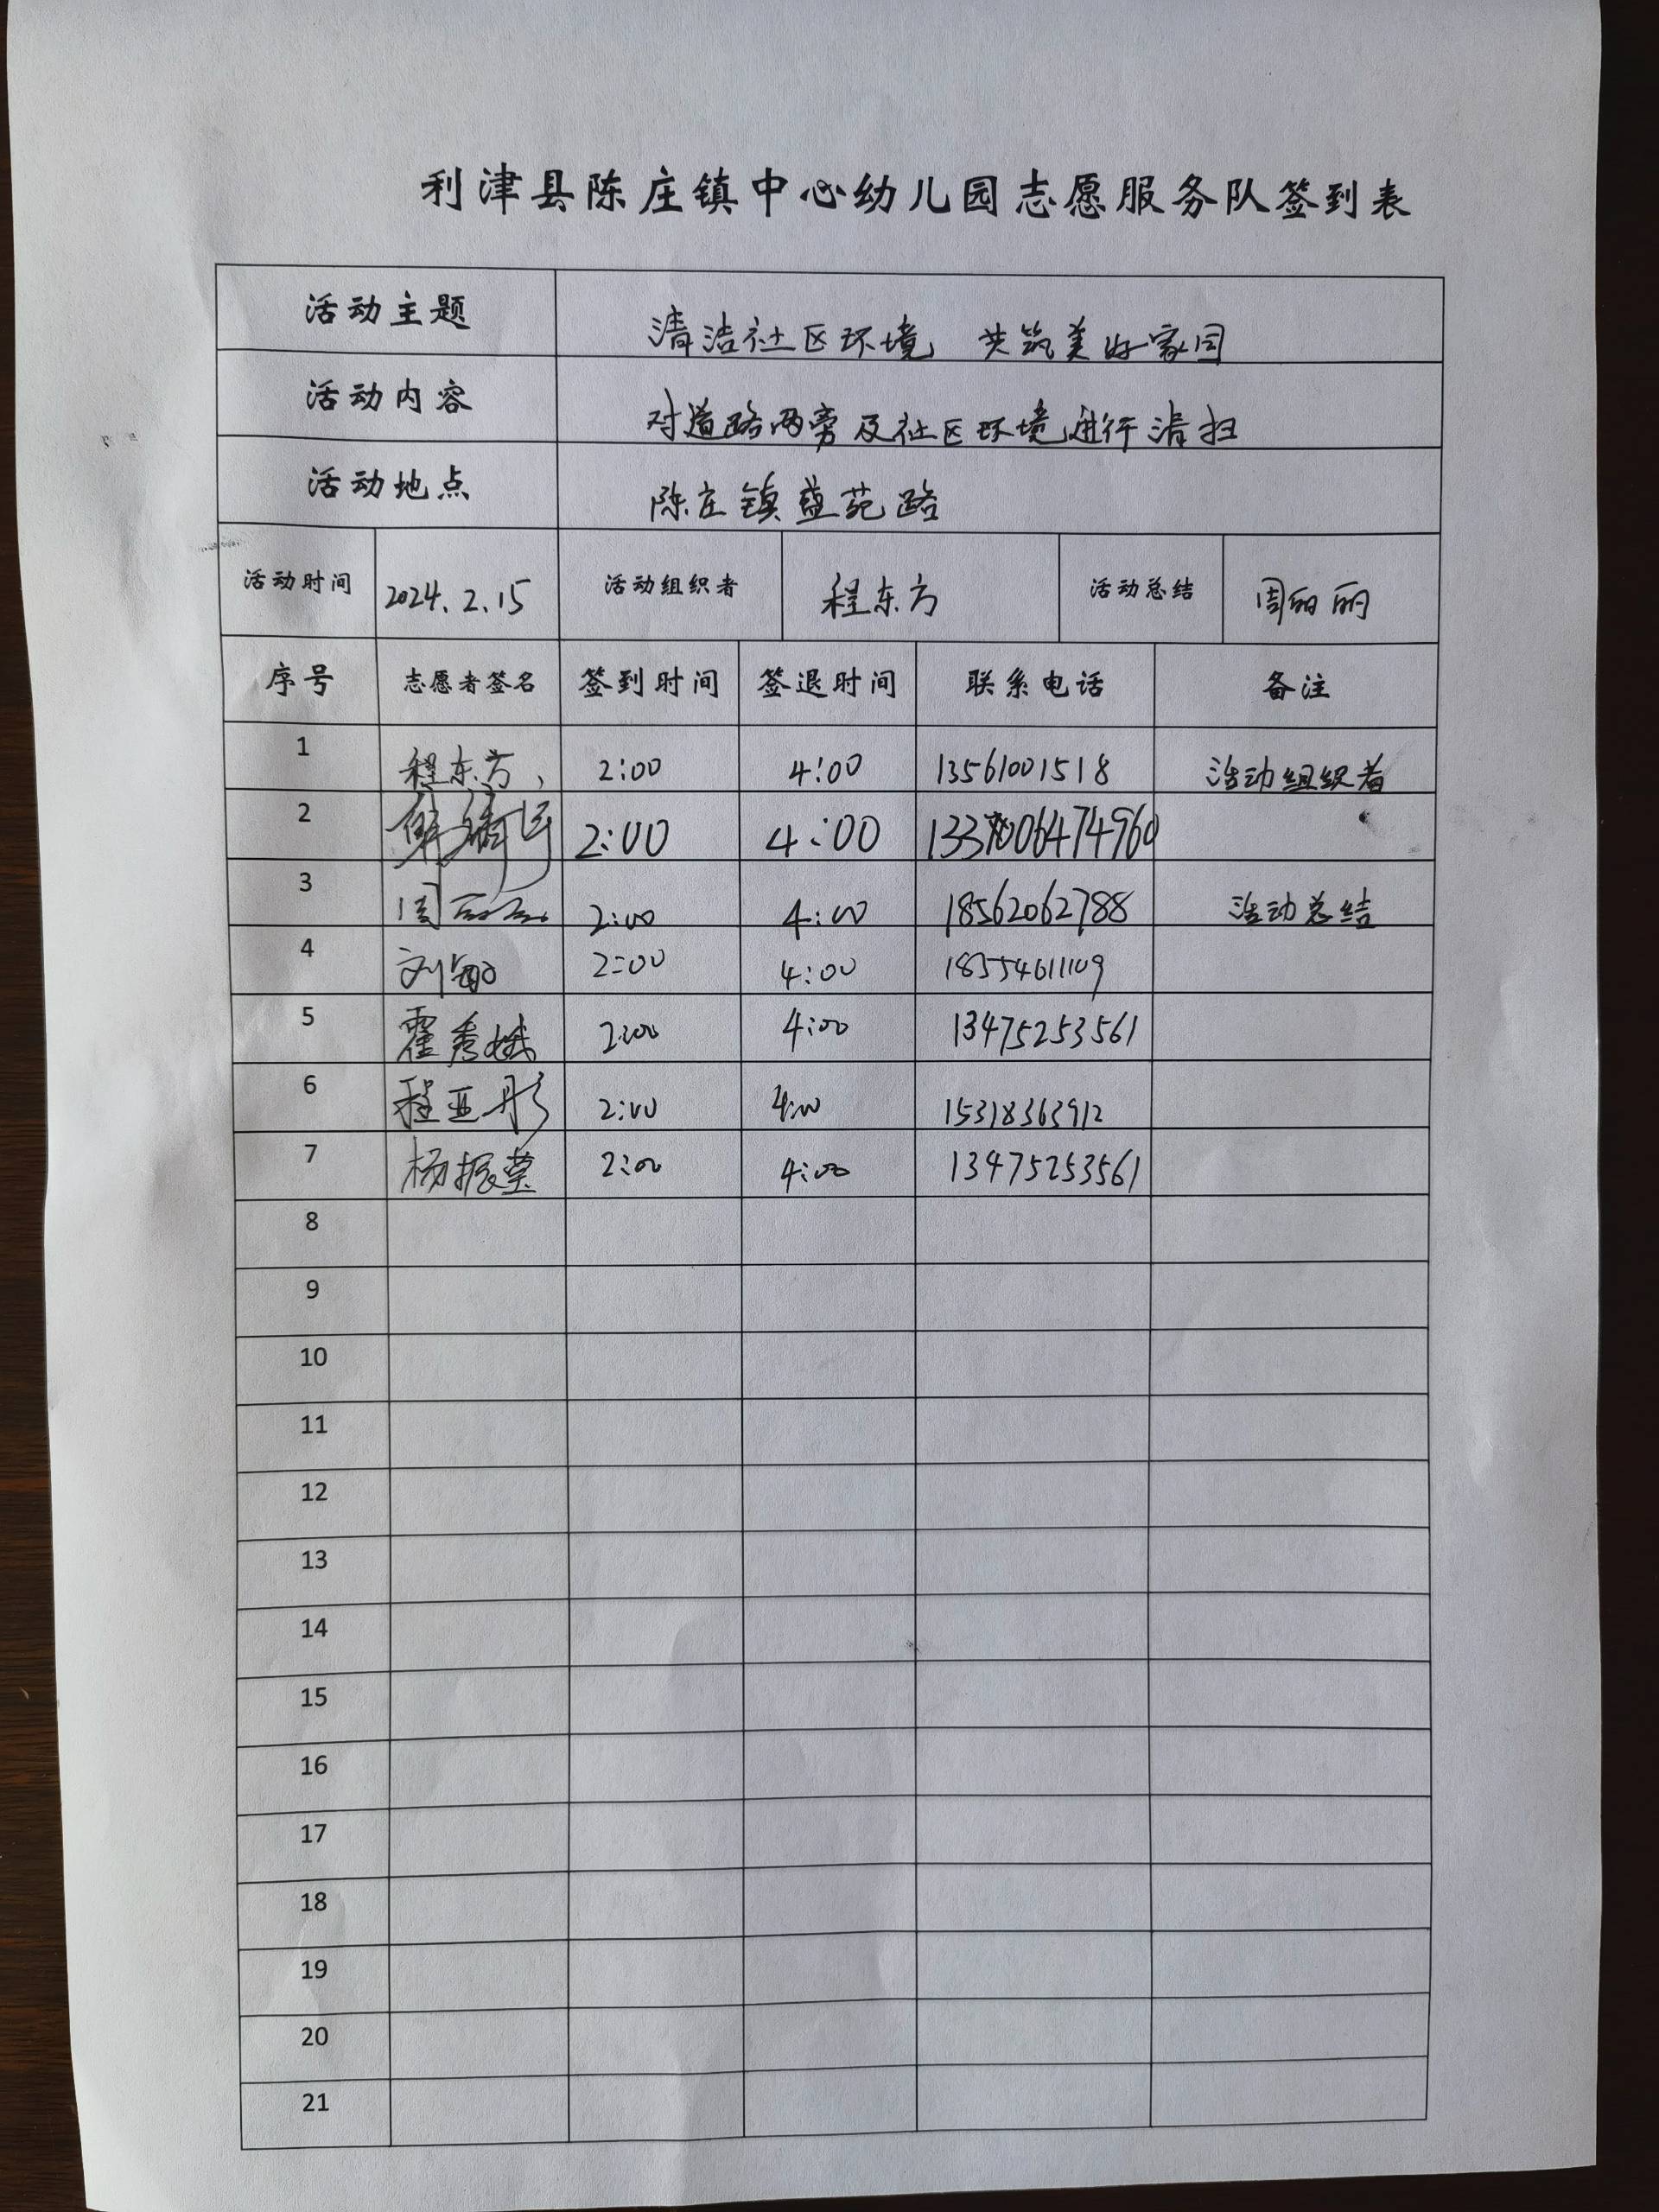 利津县陈庄镇中心幼儿园志愿服务队签到表
活动主题 清洁社区环境 共筑美好家园
活动内容 对道路两旁及社区环境进行清扫
活动地点 陈庄镇盐苑路
活动时间 2024.2.15 活动组织者 程东方 活动总结 周丽丽
序号 志愿者签名 签到时间 签退时间 联系电话 备注
1 程东方 2:00 4:00 13561001518 活动组织者
2 2:00 4:00
3 周丽丽 2:00 4:00 18562062788 活动总结
4 刘敏 2:00 4:00 18554611109
5 霍秀娥 2:00 4:00 13475253561
6 程亚彤 2:00 4:00 15318363912
7 杨振莹 2:00 4:00 13475253561
8
9
10
11
12
13
14
15
16
17
18
19
20
21